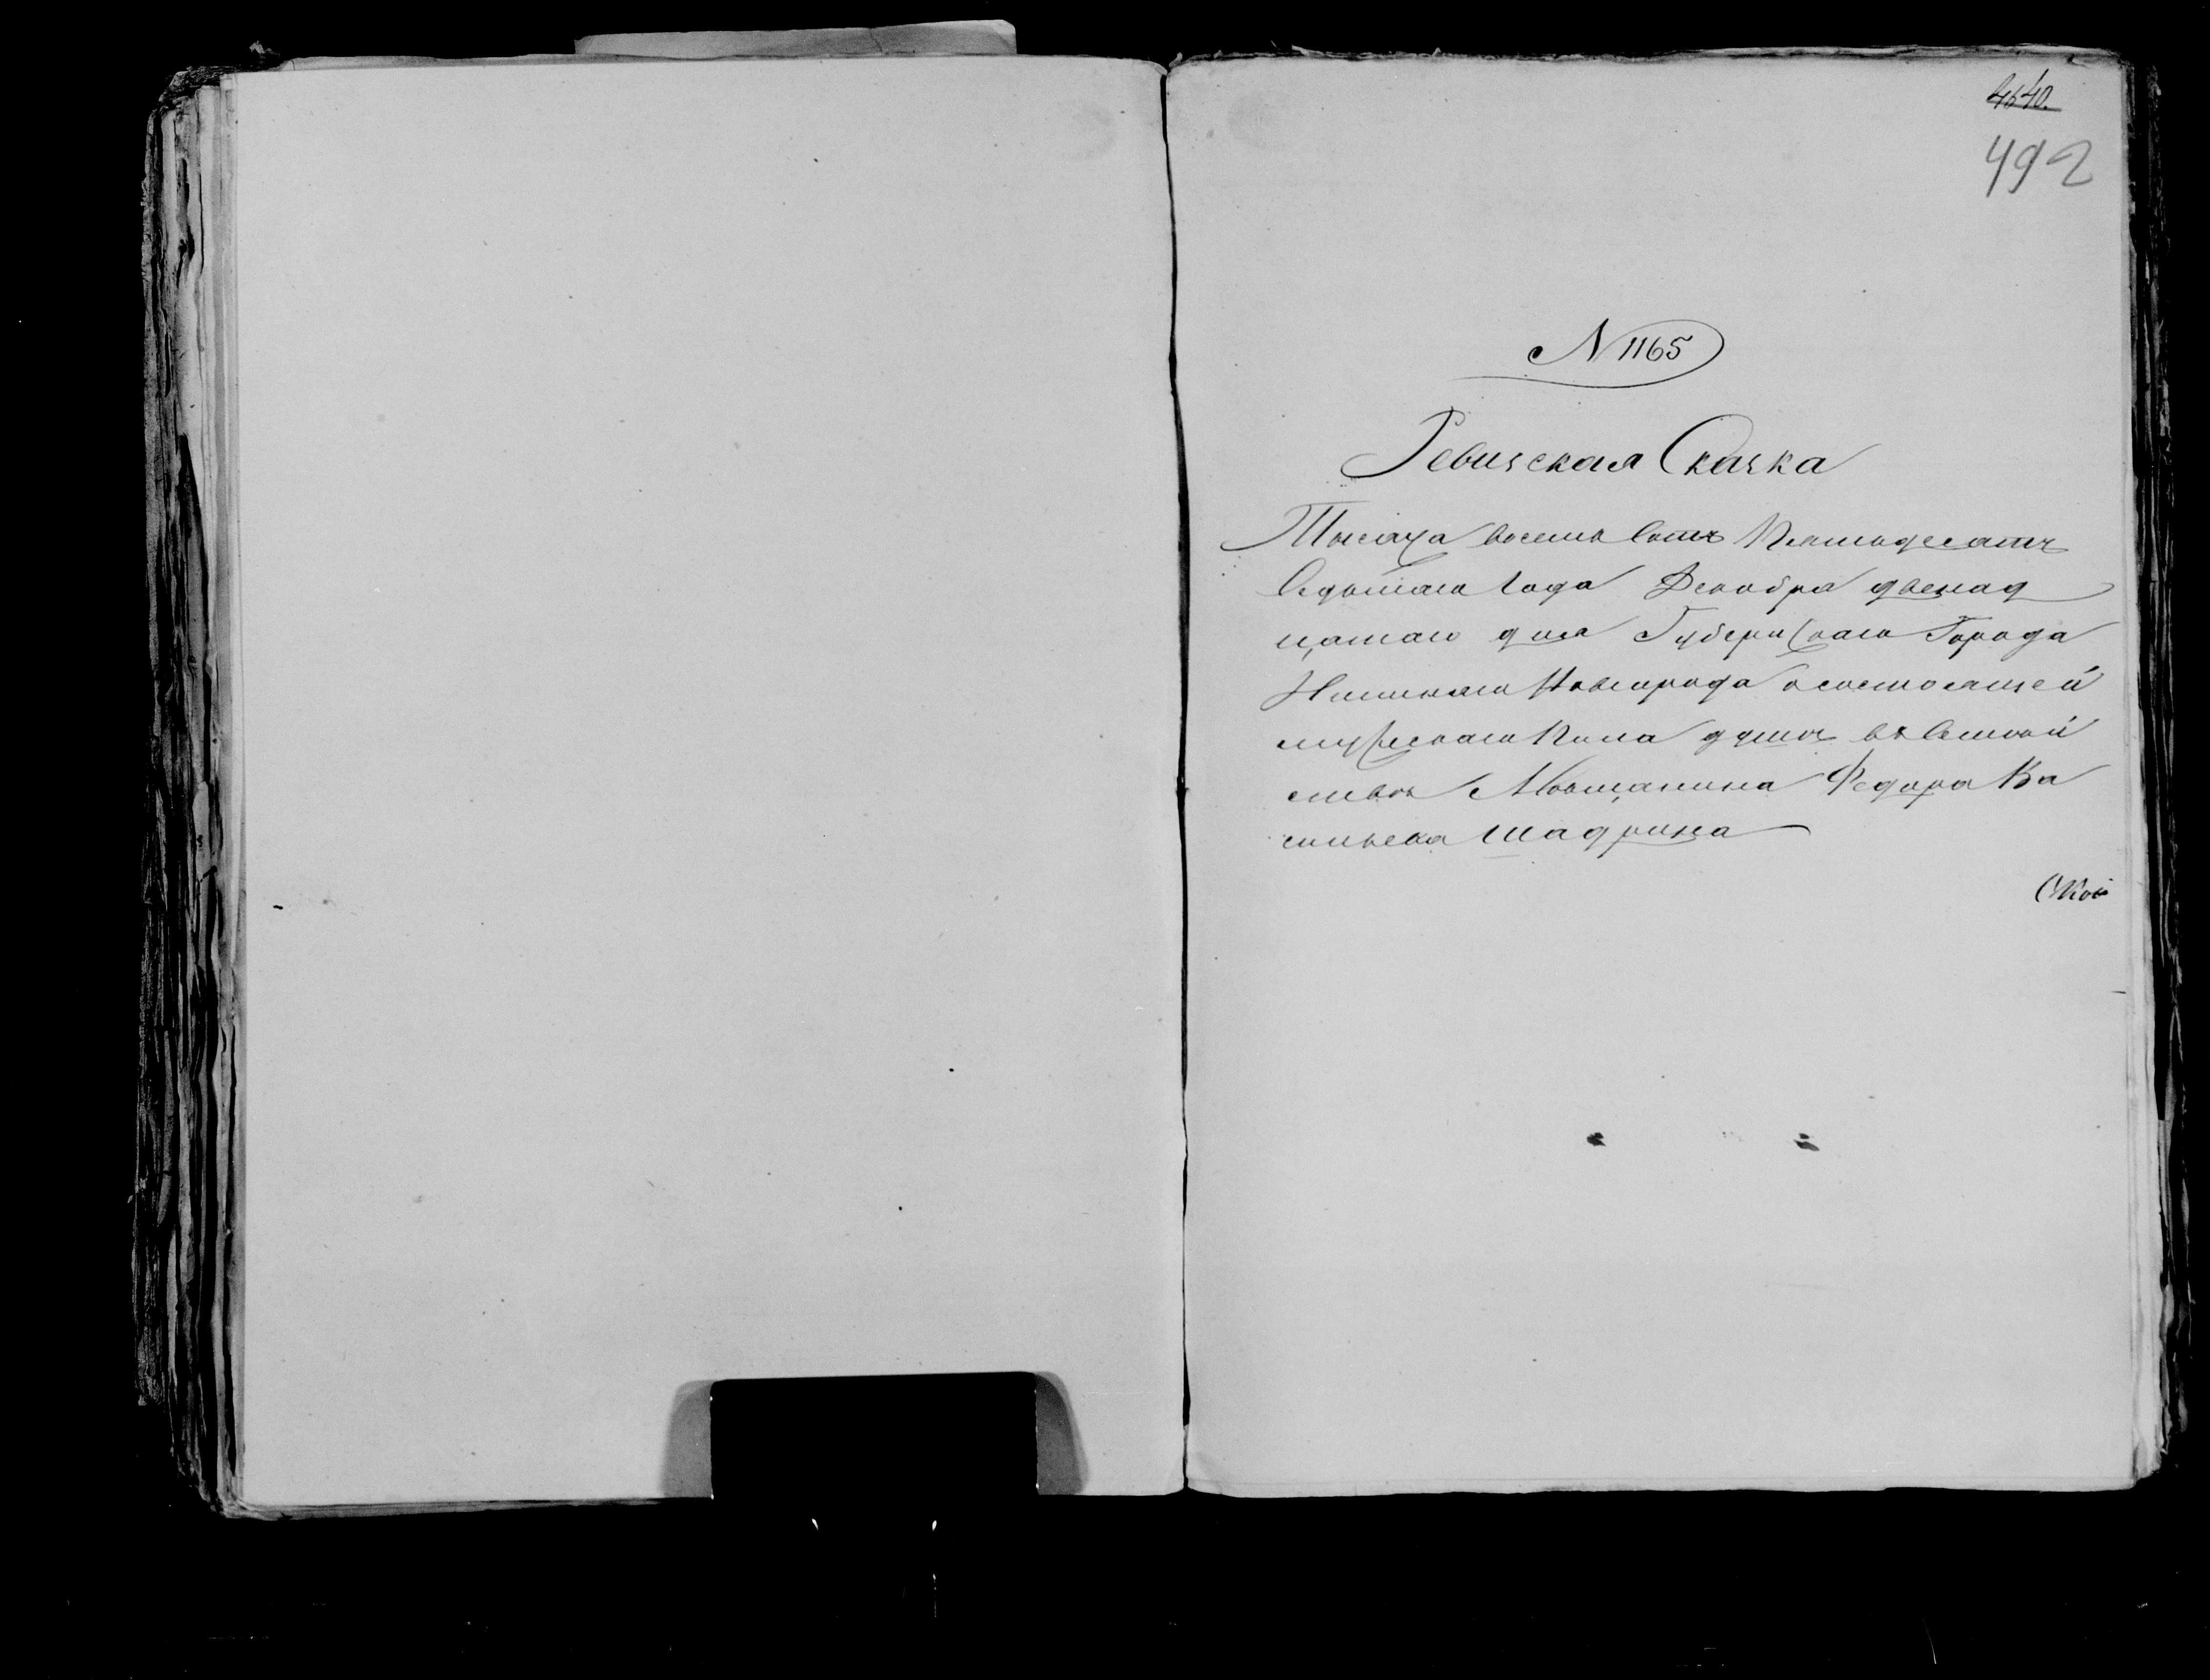 4540.
492
N 1165
Ревизская Сказка
Тысяча восемь сотъ Пятьдесятъ
Седьмаго года Декабря двенад
цатаго дня Губернскаго Города
Нижняго Новгорода о состоящей
мужескаго пола душъ въ
Мещанина Федора Ва
сильева Шадрина